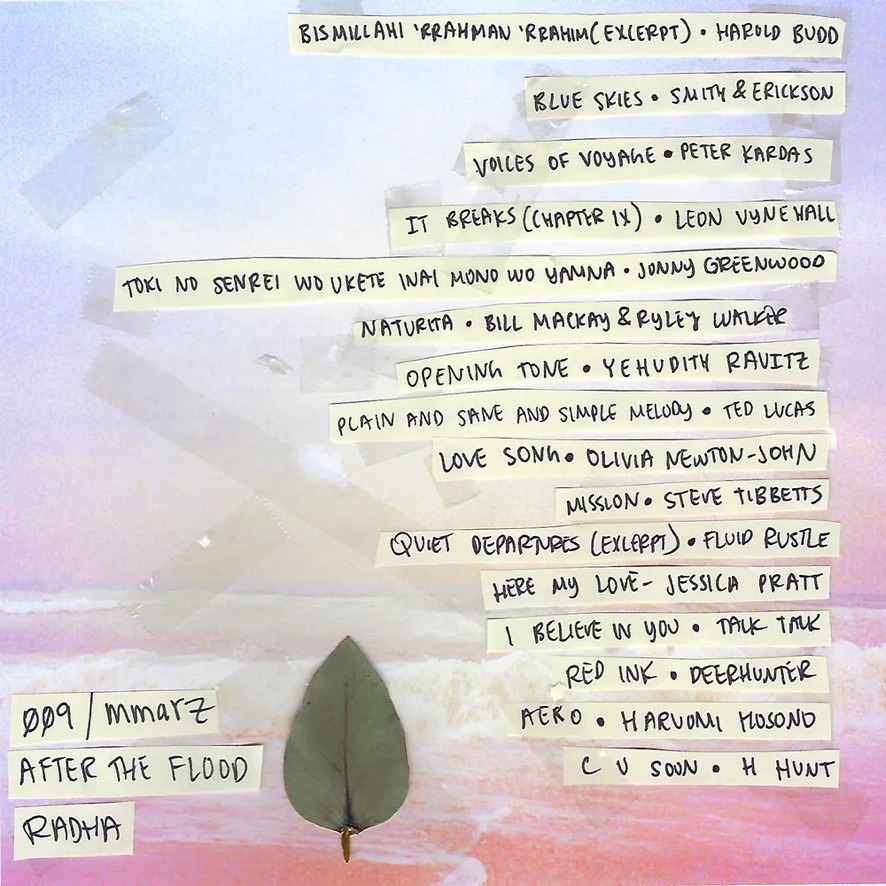 BISMILLAHI 'RRAHMAN 'RRAHIM (EXCERPT) • HAROLD BUDD
BLUE SKIES • SMITH & ERICKSON
VOICES OF VOYAGE • PETER KARDAS
IT BREAKS (CHAPTER IX) • LEON VYNEHALL
TOKI NO SENREI WO UKETE INAI MONO WO YAMNA • JONNY GREENWOOD
NATURITA • BILL MACKAY & RYLEY WALKER
OPENING TONE • YEHUDITH RAVITZ
PLAIN AND SANE AND SIMPLE MELODY • TED LUCAS
LOVE SONG • OLIVIA NEWTON-JOHN
MISSION • STEVE TIBBETTS
QUIET DEPARTURES (EXCERPT) • FLUID RUSTLE
HERE MY LOVE - JESSICA PRATT
I BELIEVE IN YOU • TALK TALK
RED INK • DEERHUNTER
AERO • HARUOMI HOSONO
C U SOON • H HUNT
ØØ9 / mmarz
AFTER THE FLOOD
RADHA